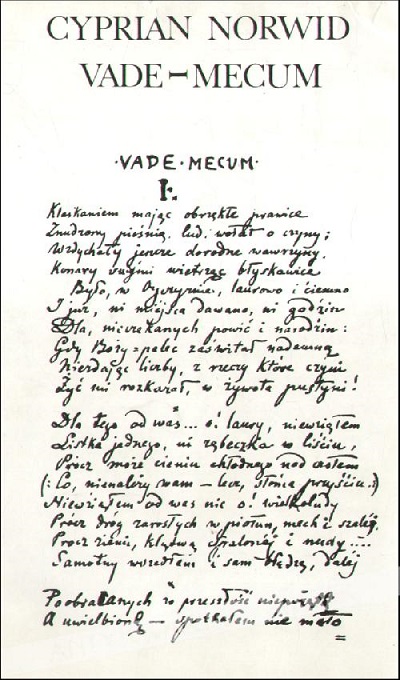 CYPRIAN NORWID
VADE-MECUM
·VADE·MECUM·
I:
Klaskaniem mając obrzękłe prawice
Znudzony pieśnią, lud, wołał o czyny;
Wzdychały jeszcze dorodne wawrzyny,
Konary swymi wietrząc błyskawice
Było, w Ojczyznie, laurowo i ciemno
I już, ni miejsca dawano, ni godzin
Dla, nieczekanych powić i narodzin:
Gdy Boży=palec zaświtał nademną
Niezdając liczby, z rzeczy które czyni
Żyć mi rozkazał, w żywota pustyni!
Dla tego od was... o! laury, niewziąłem
Listka jednego, ni ząbeczka w liściu,
Prócz może cieniu chłodnego nad czołem
(: Co, nienależy wam — lecz, słońca przyjściu.:)
Niewziąłem od was nic o! wielkoludy
Prócz dróg zarosłych w piołun, mech i szalej,
Prócz ziemi, klątwą spalonéj i nudy....
Samotny wszedłem i sam błądzę, daléj
Poobracanych w przeszłość niepojętą
A uwielbioną — spotkałem nie mało